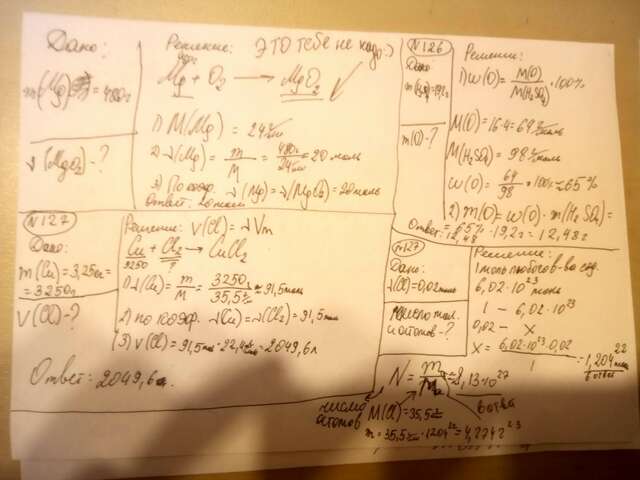 Дано:
m(Mg) = 480г
ν(MgO₂)-?
Решение: ЭТО ТЕБЕ НЕ НАДО:)
480г
Mg + O₂ → MgO₂
1) M(Mg) = 24 г/моль
2) ν(Mg) = m/M = 480г/24 г/моль = 20 моль
3) По коэф. ν(Mg) = ν(MgO₂) = 20 моль
Ответ: 20 моль
N126
Дано
m(O)-?
Решение:
1) W(O) = M(O)/M(H₂SO₄) · 100%
M(O) = 16·4 = 64 г/моль
M(H₂SO₄) = 98 г/моль
W(O) = 64/98 · 100% = 65%
2) m(O) = W(O) · m(H₂SO₄) =
= 65% · 19,2г = 12,48г
Ответ: 12,48
N127
Дано:
m(Cu) = 3,25кг =
= 3250г
V(Cl)-?
Решение: V(Cl) = νVm
Cu + Cl₂ → CuCl₂
3250 ?
1) ν(Cu) = m/M = 3250г/35,5 г/моль ≈ 91,5 моль
2) по коэф. ν(Cu) = ν(Cl₂) = 91,5 моль
(3) V(Cl) = 91,5 моль · 22,4 л/моль = 2049,6 л
Ответ: 2049,6 л.
m127
Дано:
ν(Cl) = 0,02 моль
число мол.
и атомов-?
Решение:
1 моль любого в-ва сод.
6,02·10²³ мол
1 - 6,02·10²³
0,02 - x
x = 6,02·10²³·0,02 / 1 = 1,204·10²²
в ответ
число
атомов
в ответ
M(Cl) = 35,5 г/моль